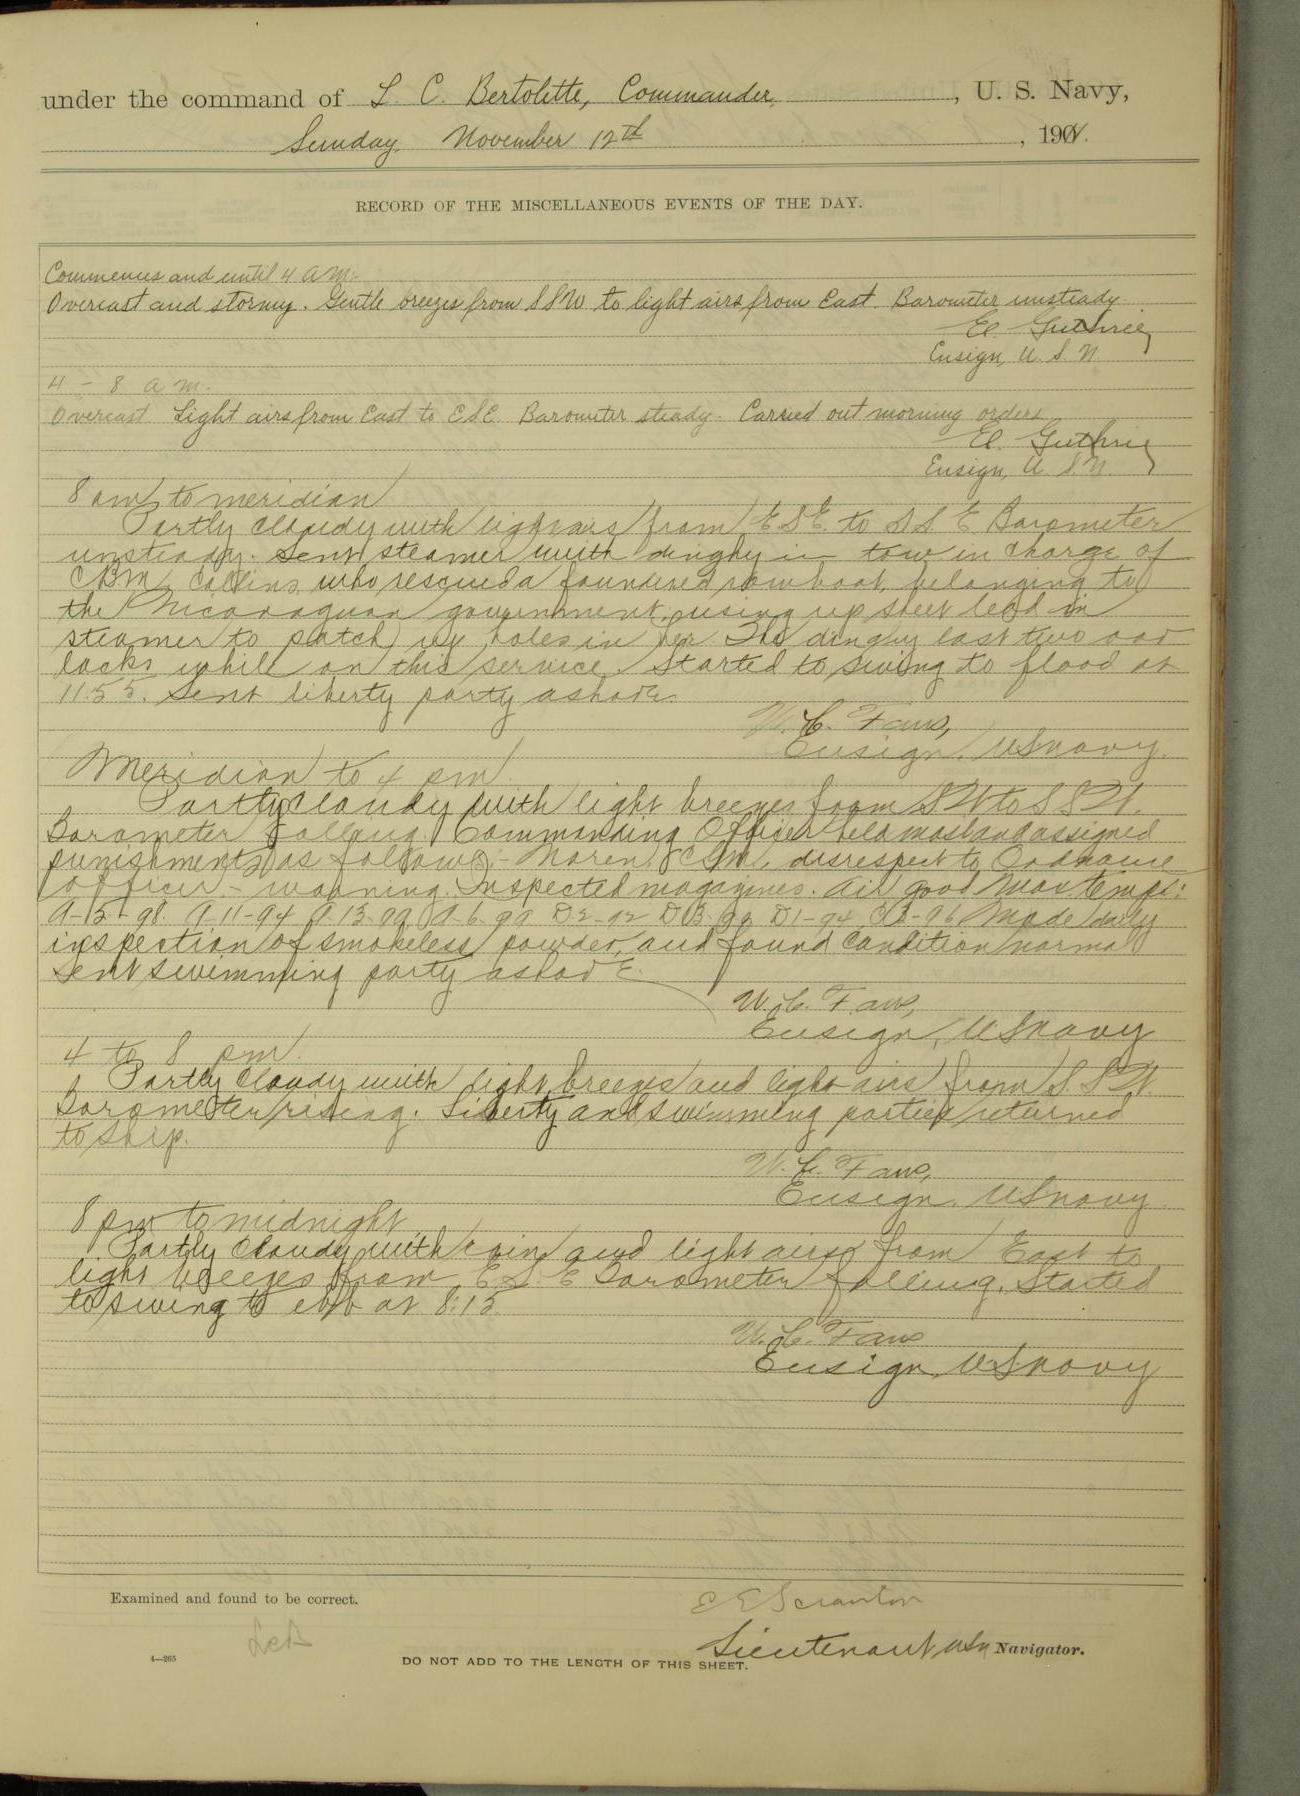 under the command of L. C. Bertolette, Commander, U. S. Navy,
Sunday November 12th, 190
RECORD OF THE MISCELLANEOUS EVENTS OF THE DAY.
Commences and until 4 A.M.
Overcast and stormy. Gentle breezes from SSW to light airs from East. Barometer unsteady
El. Guthrie,
Ensign, U. S. N.
4 - 8 a m.
Overcast Light airs from East to ESE. Barometer steady. Carried out morning orders
El. Guthrie,
Ensign, U. S. N.
8 am to meridian
Partly cloudy with light airs from ESE to SSE Barometer
unsteady. Sent steamer with dinghy in tow in charge of
CBM Collins who rescued a foundered row boat, belonging to
the Nicaraguan government, using up sheet lead in
steamer to patch up holes in her. The dinghy lost two oar
locks while on this service. Started to swing to flood at
11:55. Sent liberty party ashore.
W. C. Faus,
Ensign, US Navy.
Meridian to 4 pm.
Partly cloudy with light breezes from SW to SSW.
Barometer falling. Commanding Officer held mast and assigned
punishments as follows:- Noren, CGM, disrespect to Ordnance
Officer - warning. Inspected magazines. All good Max temps:
A-5-98. A-11-94 A-13-99 A-6-99 D2-92 D-3-92 D1-94 C3-96 Made daily
inspection of smokeless powder, and found condition normal
Sent swimming party ashore.
W. C. Faus,
Ensign, US Navy
4 to 8 pm.
Partly cloudy with light breezes and light airs from S.SW.
Barometer rising. Liberty and swimming parties returned
to ship.
W. C. Faus,
Ensign, US Navy.
8 pm to midnight
Partly cloudy with rain and light airs from East to
light breezes from E.S.E Barometer falling. Started
to swing to ebb at 8:15
W. C. Faus
Ensign, US Navy
Examined and found to be correct.
E E Scranton
LCB
Lieutenant, USN Navigator.
4—265
DO NOT ADD TO THE LENGTH OF THIS SHEET.